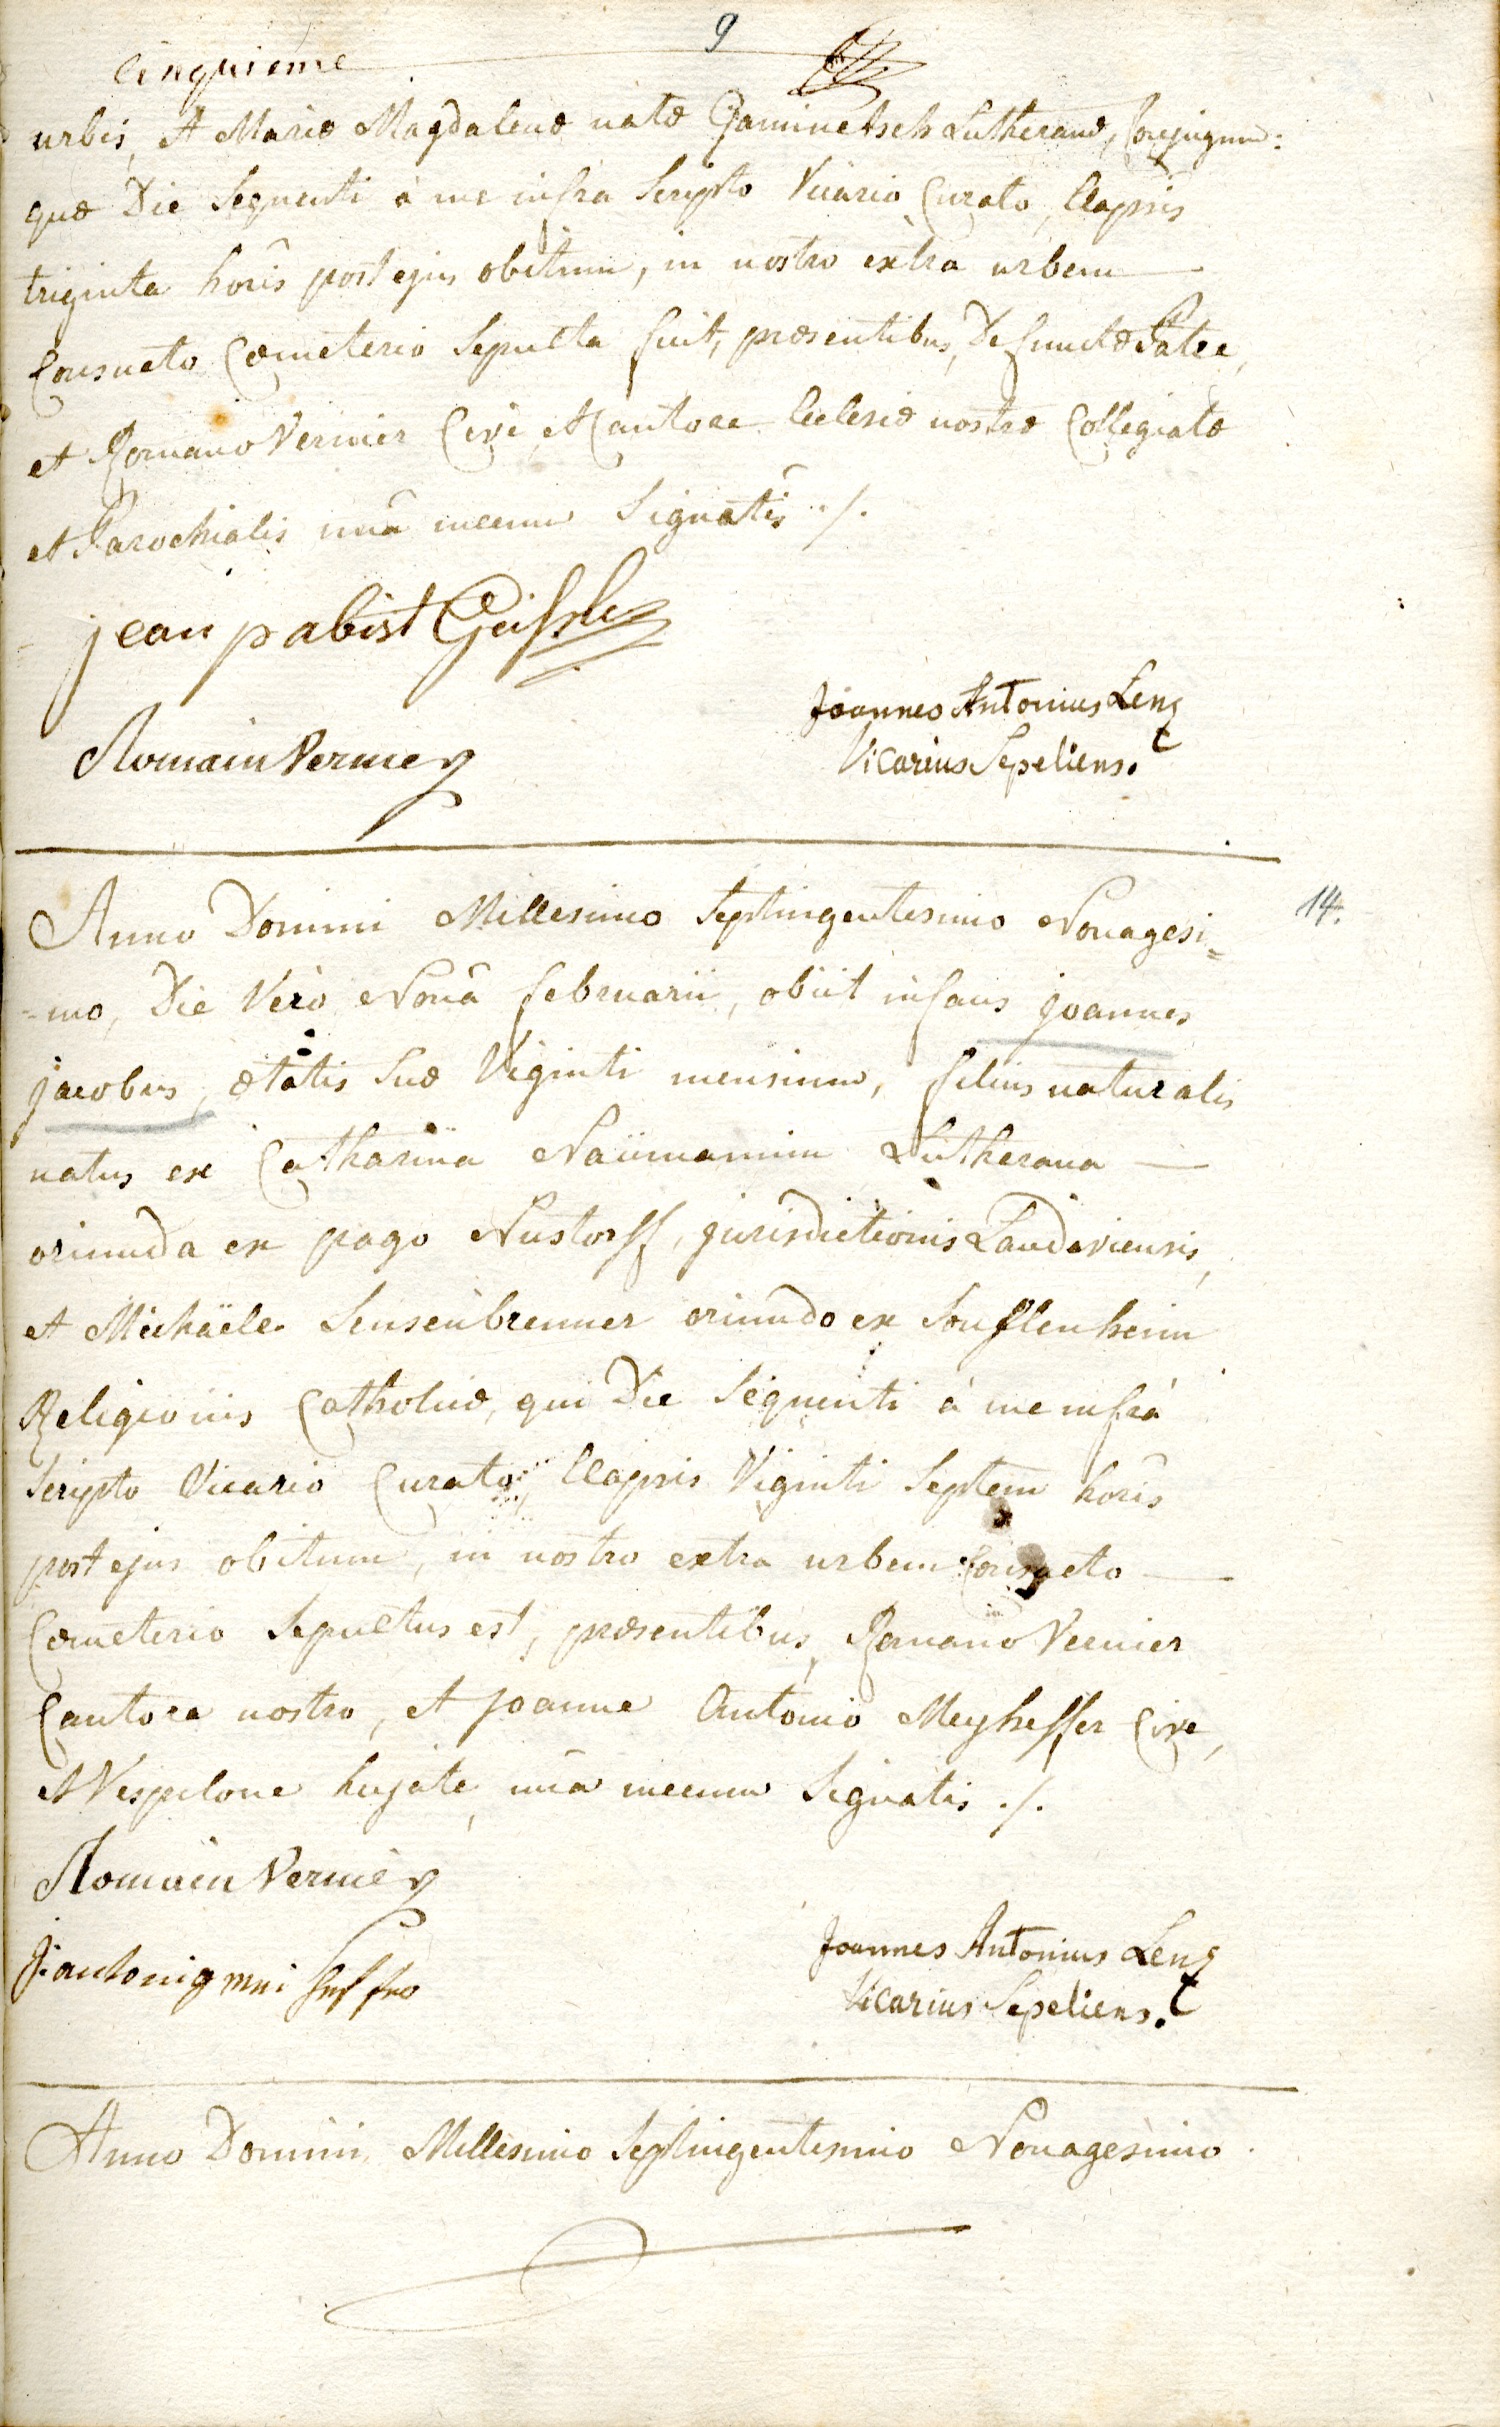 9
Cinquieme
urbis, et Mariæ Magdalenæ natæ Gaminetsch Lutheranæ, Conjugum:
quæ Die Sequenti à me infra Scripto Vicario Curato, Elapsis
triginta horis post ejus obitum, in nostro extra urbem —
Consueto Cœmeterio Sepulta fuit, præsentibus, Defunctæ Patre,
et Romano Vernier Cive, et Cantore Ecclesiæ nostræ Collegiatæ
et Parochialis unà mecum Signatis ./.
jean pabist Geissler
Romain Vernier
Joannes Antonius Lenz
Vicarius Sepeliens.
14.
Anno Domini Millesimo Septingentesimo Nonagesi=
=mo, Die Verò Nonâ februarii, obiit infans joannes
jacobus, ætatis Suæ Viginti mensium, filius naturalis
natus ex Catharina Naümannin Lutherana —
oriunda ex pago Nustorff, jurisdictionis Landaviensis,
et Michäele Sensenbrenner oriundo ex Soufflenheim
Religionis Catholicæ, qui Die Sequenti à me infrà
Scripto Vicario Curato, Elapsis Viginti Septem horis
post ejus obitum, in nostro extra urbem Consueto —
Cœmeterio Sepultus est, præsentibus, Romano Vernier
Cantore nostro, et Joanne Antonio Meyheffer Cive,
et Vespilone hujate, unà mecum Signatis ./.
Romain Vernier
J: antoni
Joannes Antonius Lenz
Vicarius Sepeliens.
Anno Domini Millesimo Septingentesimo Nonagesimo